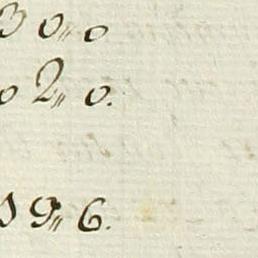 30,,0
0 2,,0.
19,,6.